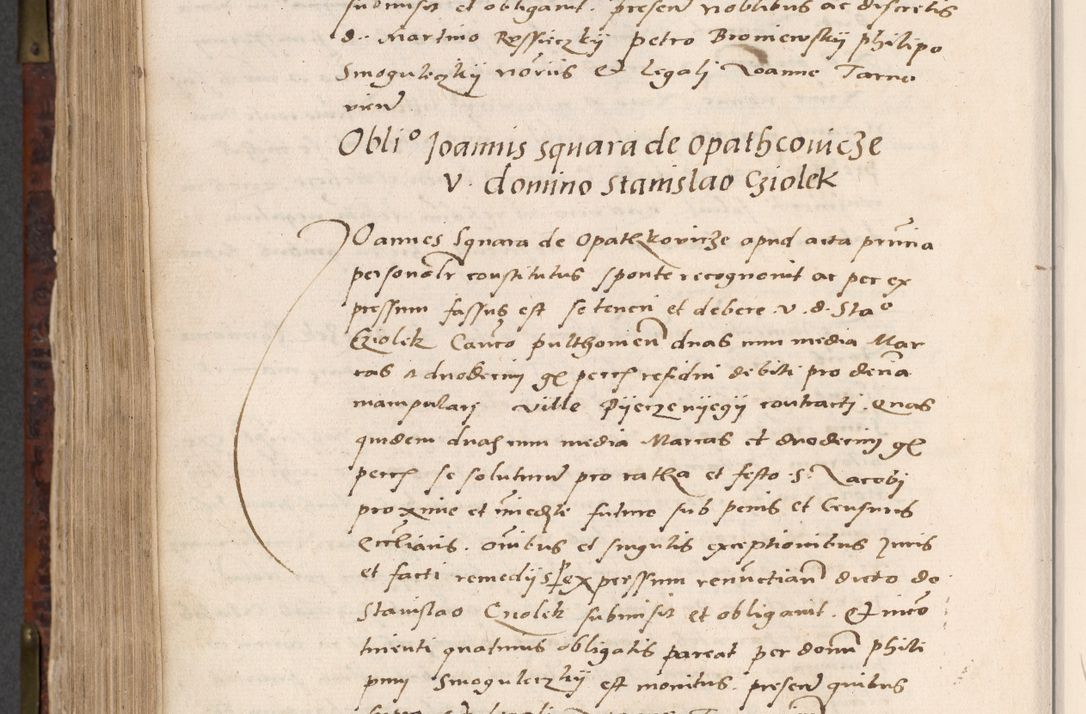 submisit et obligavit. presen nobilibus ac discretis
d. Martino Rossieczkij Petro Broniewskij philipo
Smoguleczkij noriis Et legali Joanne Tarno
vien
Obli° Joannis Squara de Opathcovicze
V. domino Stanislao Cziolek
Joannes Squara de Opathkovicze apud acta prnia
personalr constitutus sponte recognovit ac per ex
pressum fassus est se teneri et debere v. d. Sta°
Cziolek Canco pulthovien duas cum media Mar
cas et duodecim gr pecch residui debiti pro decia
manipulari ville Pijeczenijegij contracti. Quas
quidem duas cum media Marcas et duodecim gr
pecch se soluturum pro ratha et festo S. Jacobj
proxime et imediate futuro sub penis et Censuris
Ecclianis. omibus et singulis exceptionibus Juris
et facti remedijs expressum renunctian dicto do
Stanislao Cziolek submisit et obligavit. Et inco
tinenti quatinus obligatis pareat per domum phili
pum Smoguleczkij est monitus. presen quibus